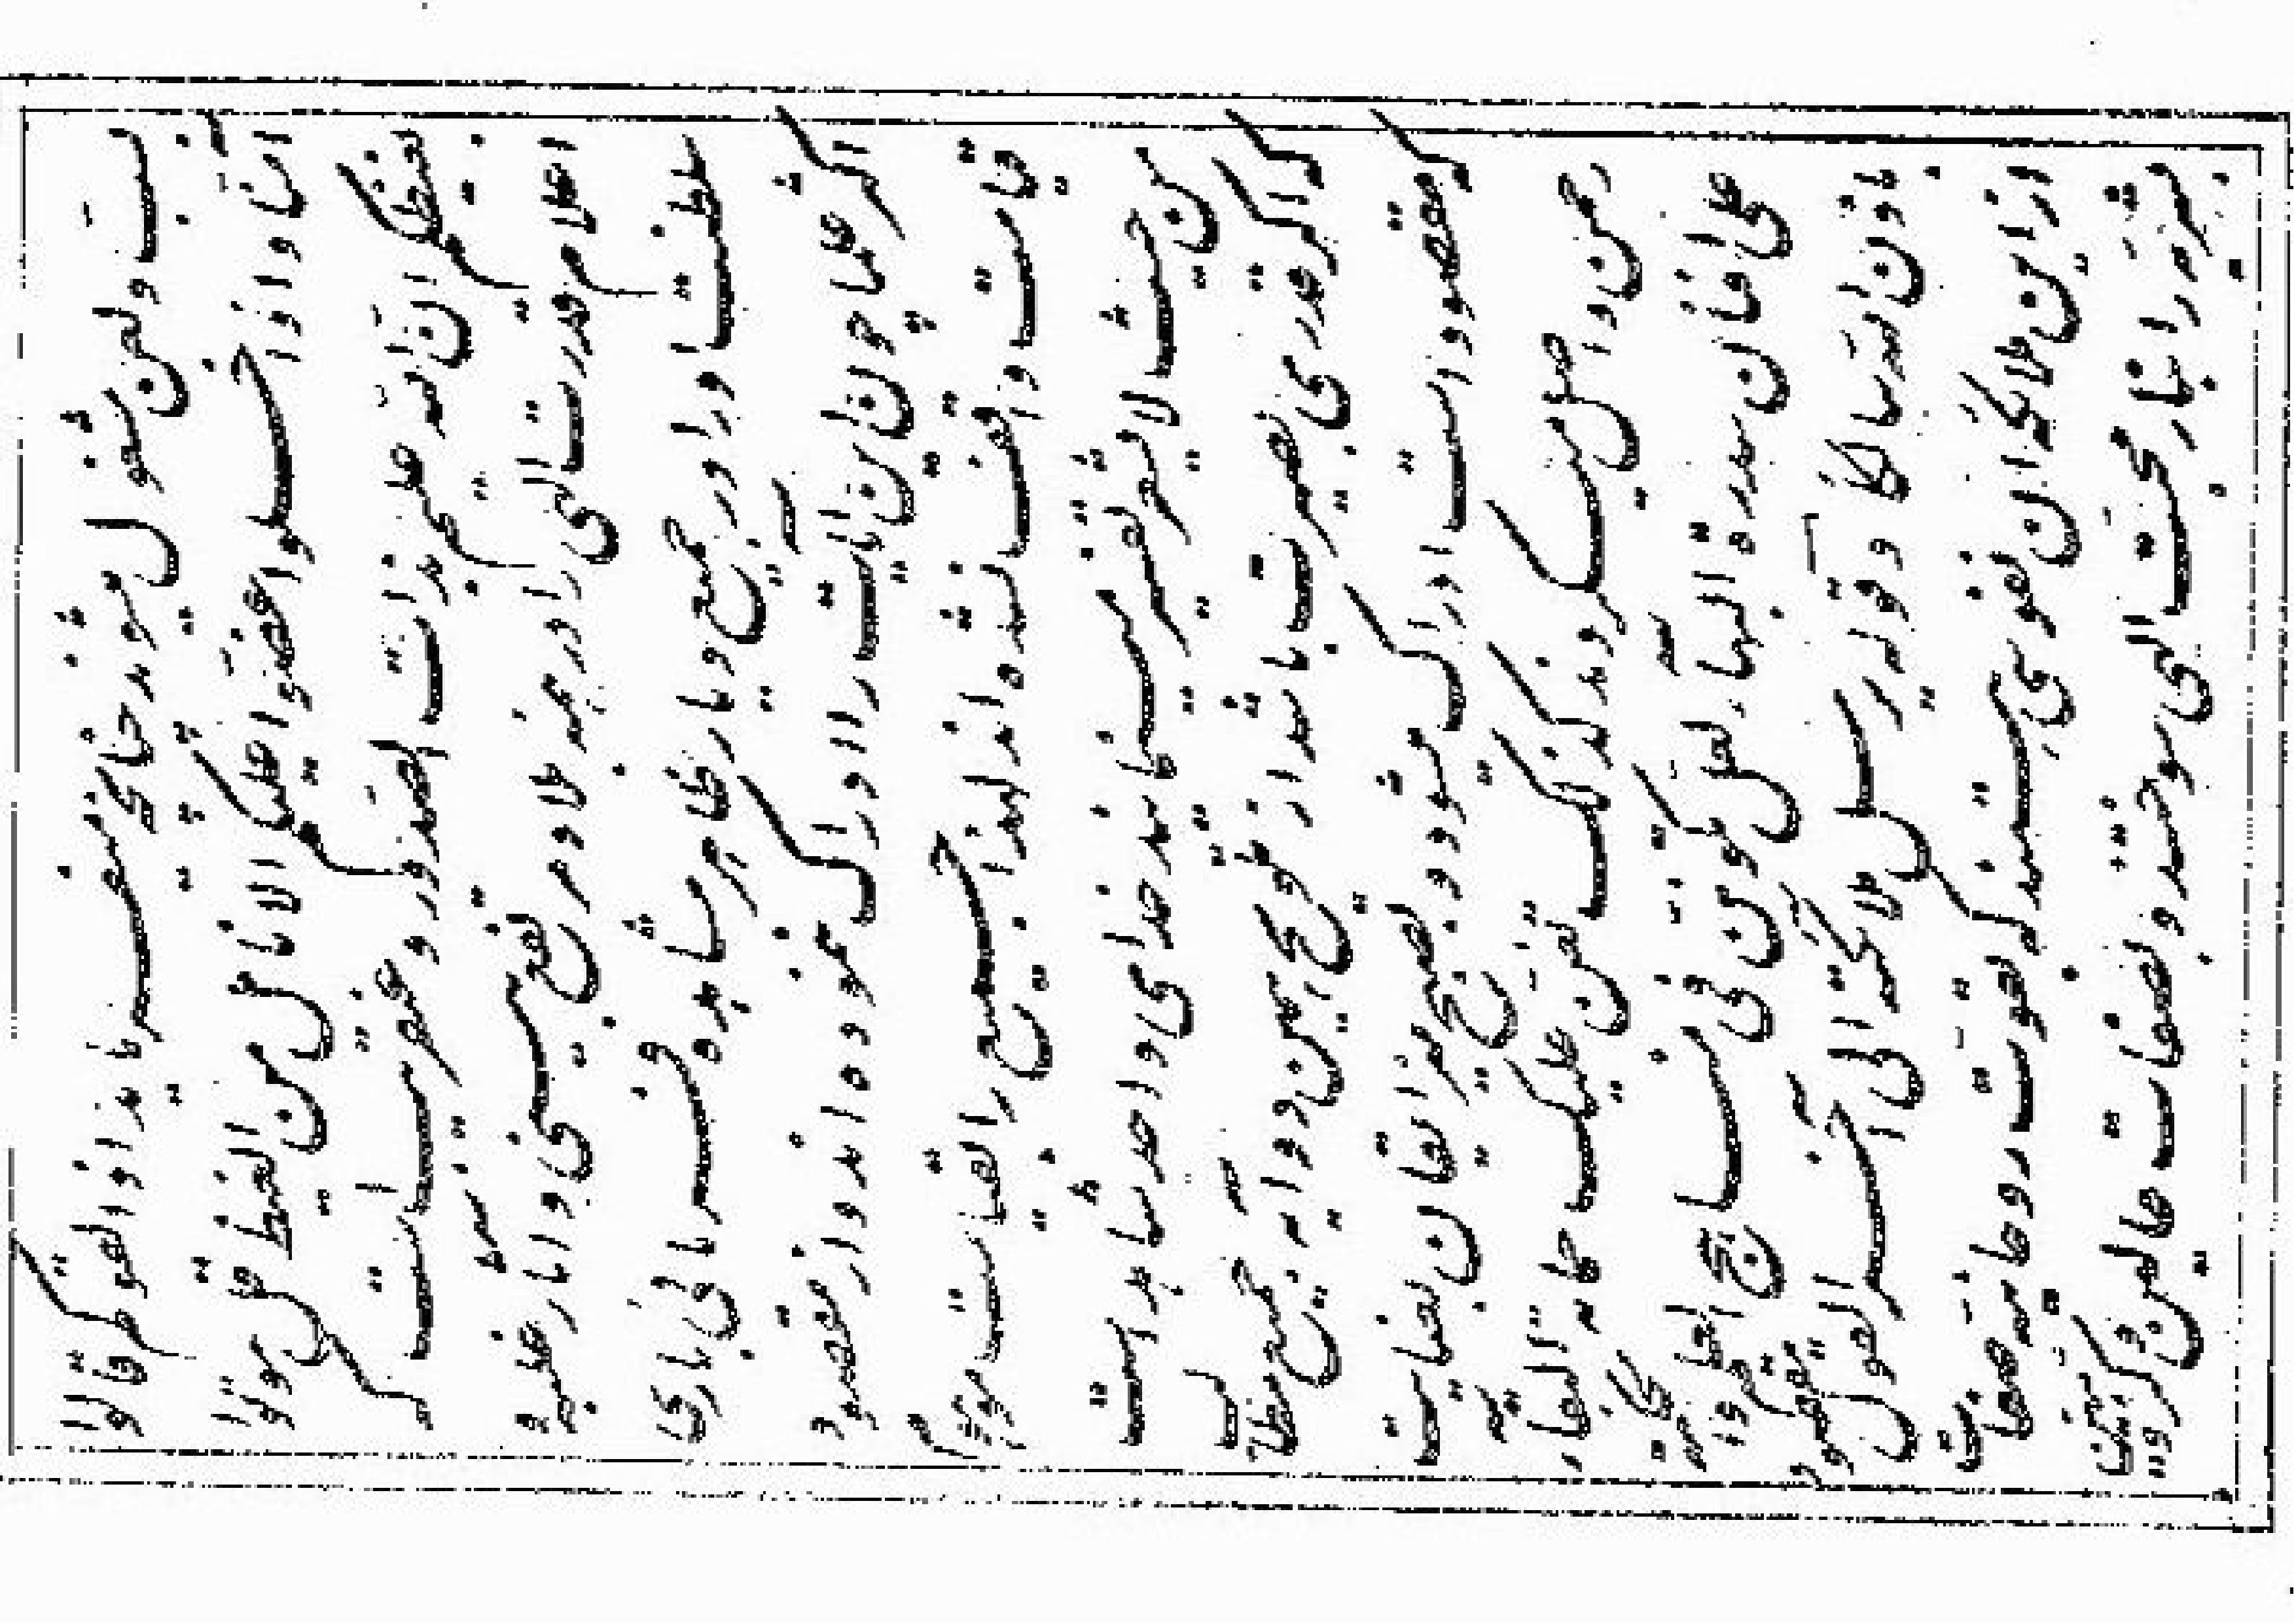 است و باین مشغول میشوند چنانچه میفرماید و اذا لقوکم قالوا
امنّا و اذا خلوا عضّوا علیکم الانامل من الغیظ قل موتوا
بغیظکم ان الله علیم بذات الصدور و عنقریب است که
اعلام قدرت الهی را در جمیع بلاد مرتفع بینی و اثار غلبه و
سلطنت او را در جمیع دیار ظاهر مشاهده فرمائی باری
اکثر علما چون این ایات را ادراک ننموده اند و از مقصود
قیامت واقف نشده اند لهذا جمیع را بقیامت موهوم
من حیث لا یشعر تفسیر مینمایند خدای واحد شاهد است
که اگر قدری بصیرت باشد از تلویح همین دو آیه جمیع مطالب
که مقصود است ادراک میشود و بصبح منیر ایقان بعنایت
رحمن واصل میگردند کذلک تغن علیک حمامة البقاء
علی افنان سدرة البهاء لعل تکونن فی مناهج العلم و الحکمة
باذن الله سالکاً و قوله یرسل ملائکته الی آخر القول مقصود
از این ملائکه ان نفوسی هستند که بقوت روحانیه صفات
بشریه را بنار محبت الهی سوختند و بصفات عالین و کروبین